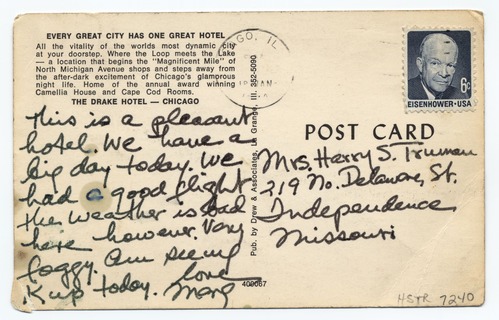 EVERY GREAT CITY HAS ONE GREAT HOTEL
All the vitality of the worlds most dynamic city
at your doorstep. Where the Loop meets the Lake
— a location that begins the "Magnificent Mile" of
North Michigan Avenue shops and steps away from
the after-dark excitement of Chicago's glamorous
night life. Home of the annual award winning
Camellia House and Cape Cod Rooms.
THE DRAKE HOTEL — CHICAGO
This is a pleasant
hotel. We have a
big day today. We
had a good flight
the weather is bad
here however. Very
foggy. Am seeing
K up today. love
Marg
Pub. by Drew & Associates, La Grange, Ill. 352-5090
409067
GO, IL
EISENHOWER·USA
6c
POST CARD
Mrs. Harry S. Truman
219 No. Delaware, St.
Independence
Missouri
HSTR 7240